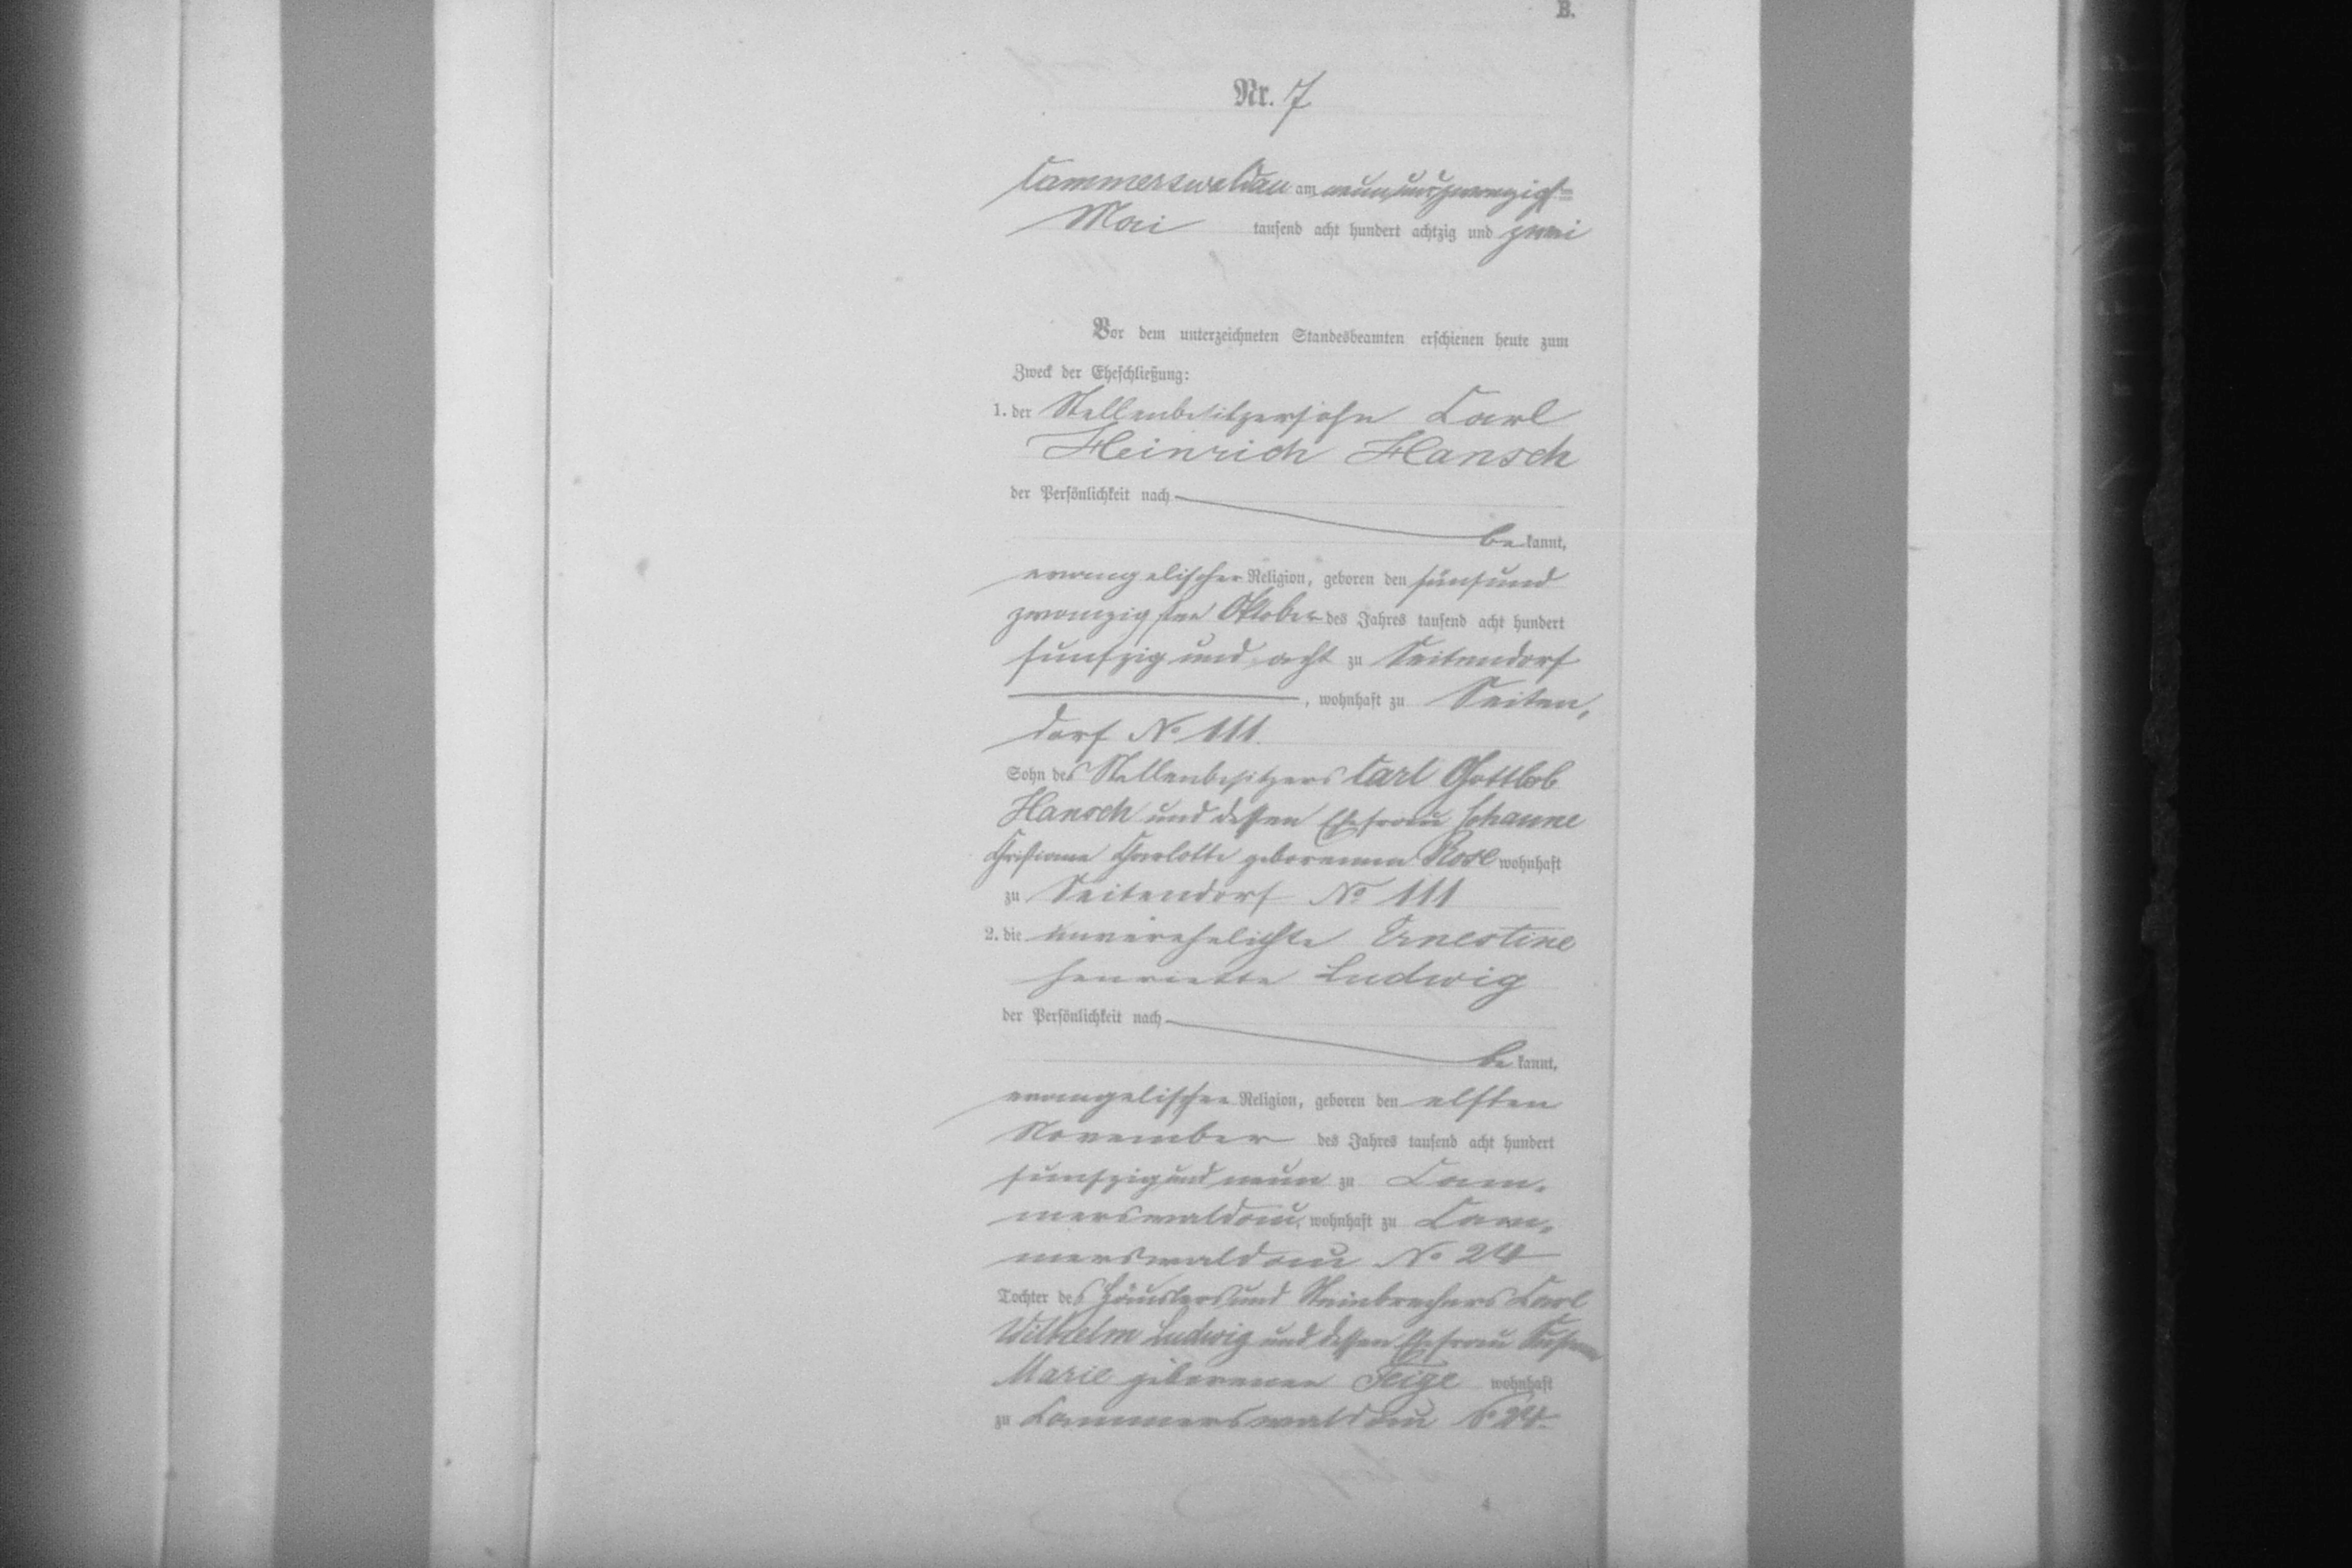 B.
Nr. 7
Cammerswaldau am neunundzwanzigsten
Mai tausend acht hundert achtzig und zwei
Vor dem unterzeichneten Standesbeamten erschienen heute zum
Zweck der Eheschließung:
1. der Stellenbesitzersohn Carl
Heinrich Hansch
der Persönlichkeit nach
be kannt,
evangelischer Religion, geboren den fünfund
zwanzigsten Oktober des Jahres tausend acht hundert
funfzig und acht zu Seitendorf
, wohnhaft zu Seiten,
dorf No 111.
Sohn des Stellenbesitzers Carl Gottlob
Hansch und dessen Ehefrau Johanne
Christiane Charlotte geborenen Rose wohnhaft
zu Seitendorf No 111
2. die unverehelichte Ernestine
Henriette Ludwig
der Persönlichkeit nach
be kannt,
evangelischer Religion, geboren den elften
November des Jahres tausend acht hundert
funfzig und neun zu Cam,
merswaldau, wohnhaft zu Cam,
merswaldau No 24
Tochter des Häuslers und Steinbrechers Carl
Wilhelm Ludwig und dessen Ehefrau
Marie geborenen Feige wohnhaft
zu Cammerswaldau No 24.
4